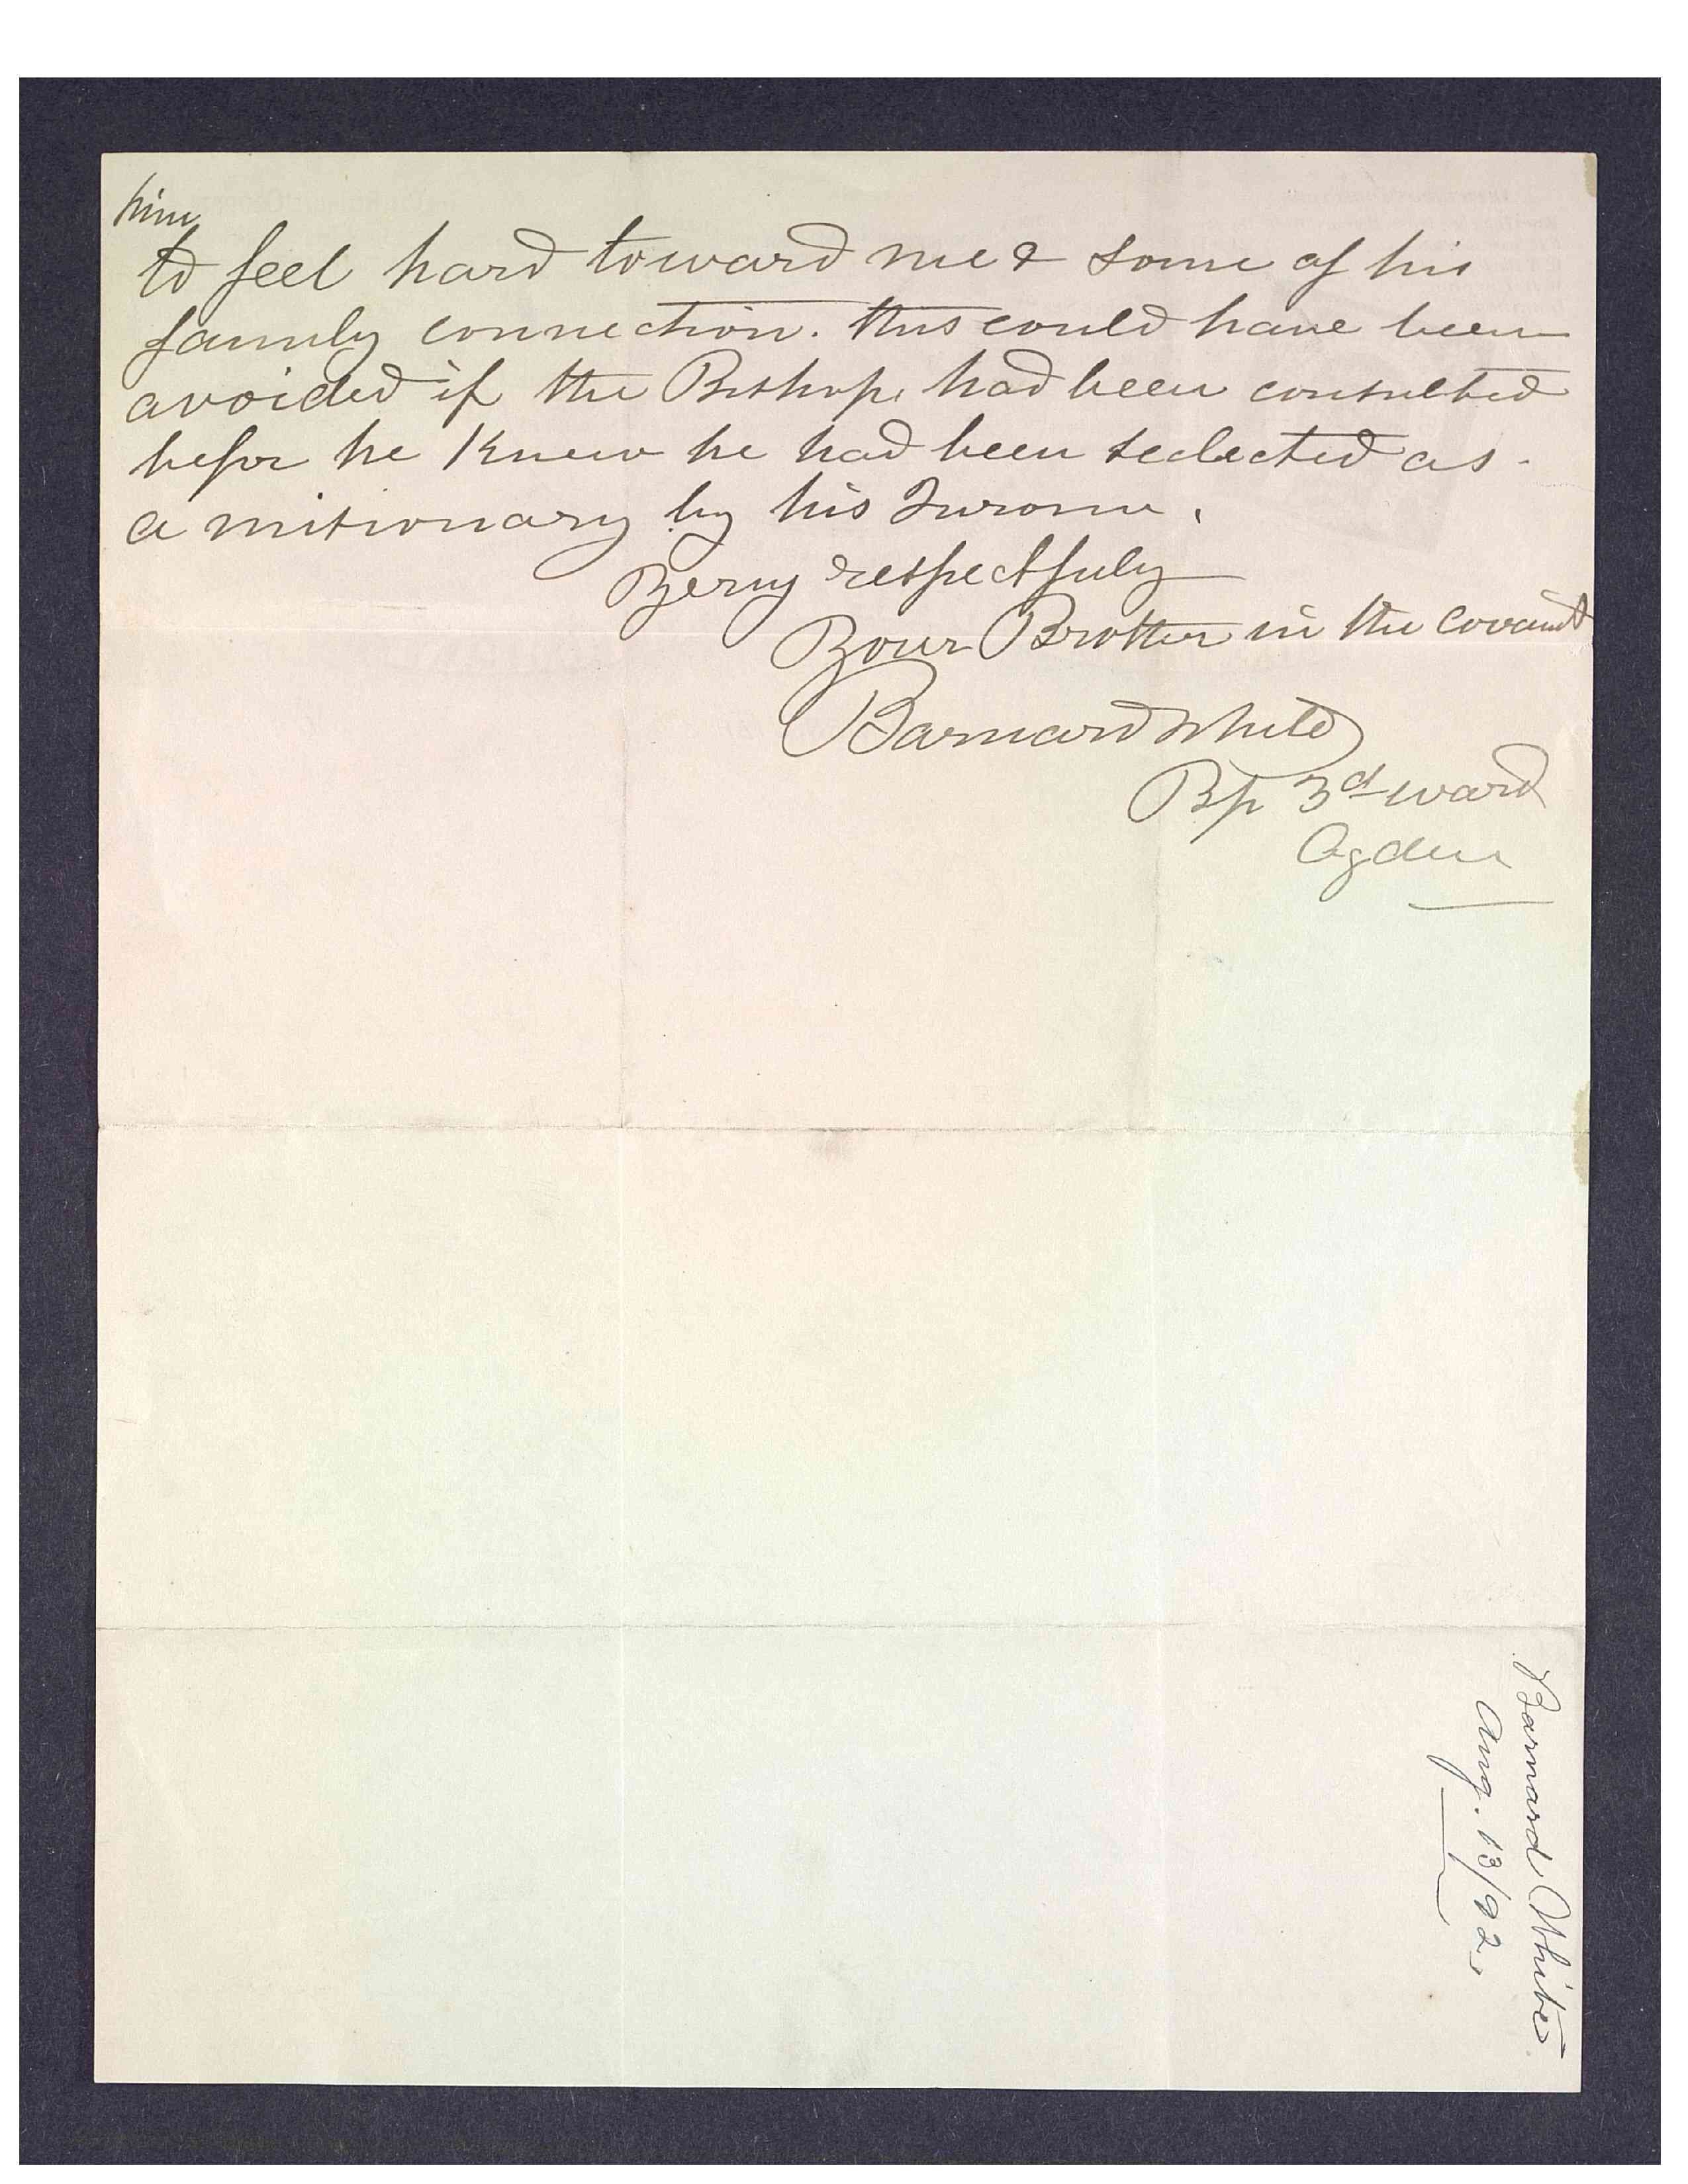 him
to feel hard toward me & some of his
family connection. this could have been
avoided if the Bishop had been consulted
befor he knew he had been seclected as
a misionary by his
Very respectfuly
Your Brother in the
Barnard White
Bp 3d ward
Ogden
Barnard White
Aug. 13/92.